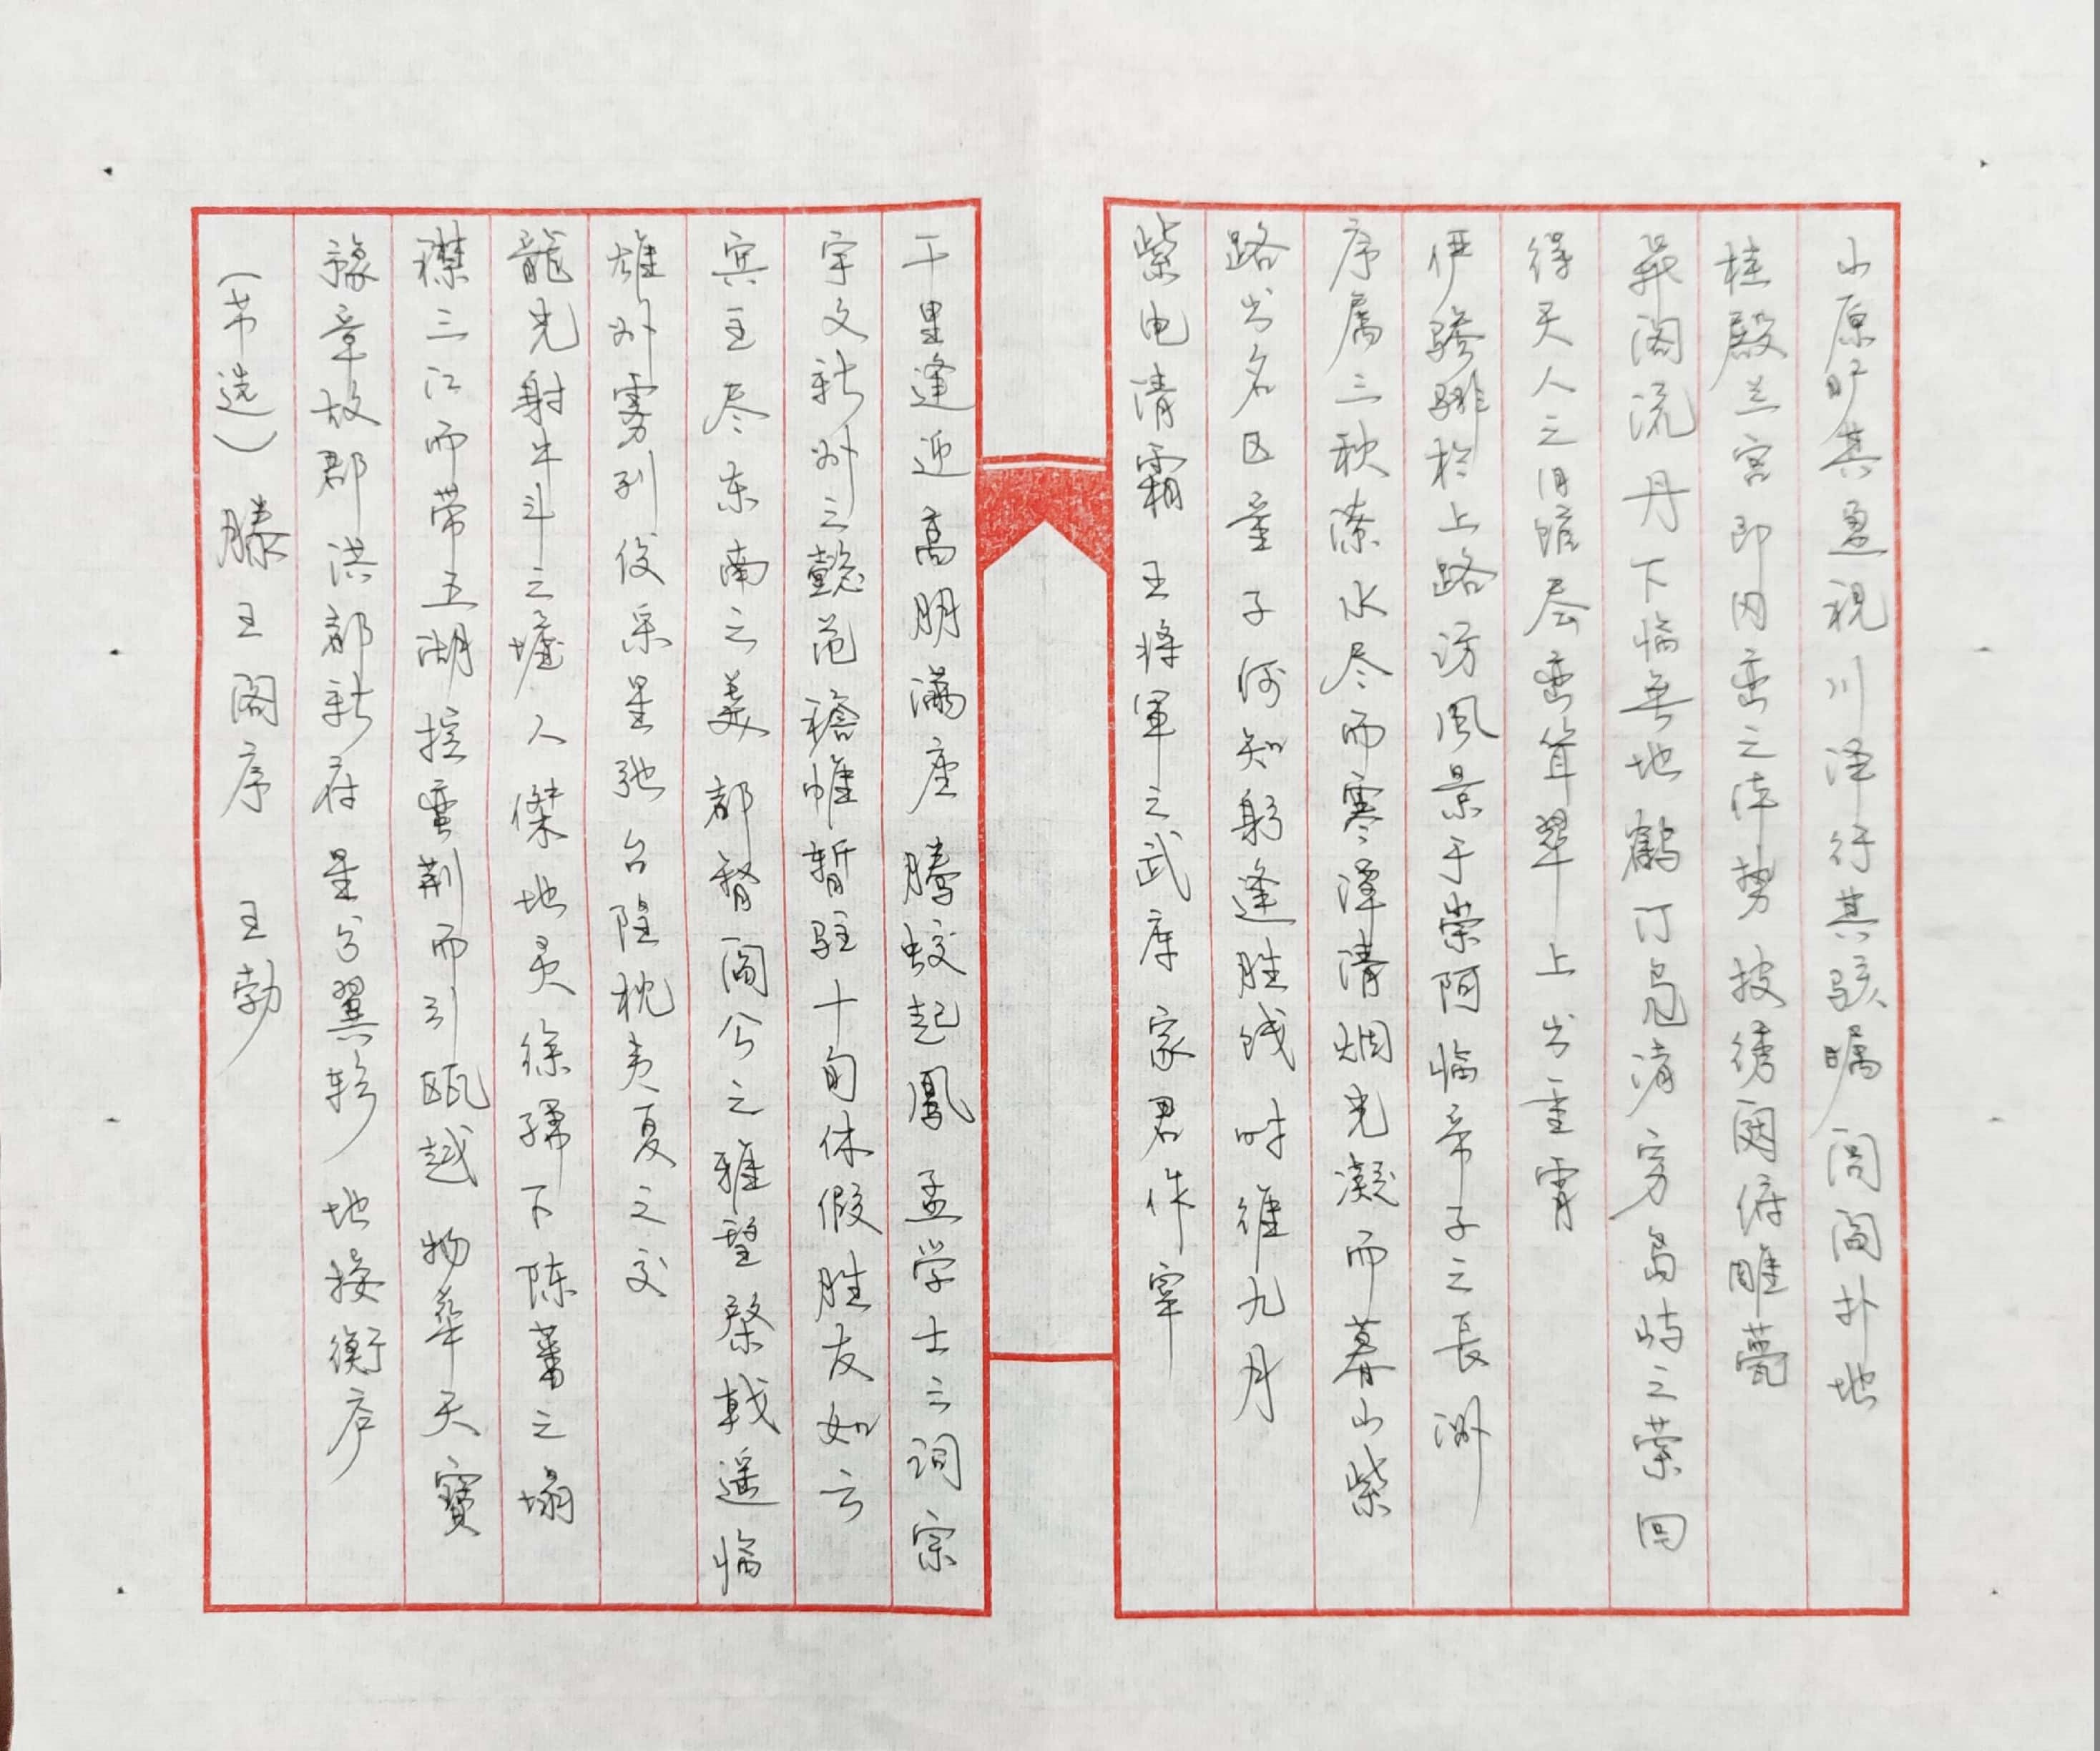 (节选) 滕王阁序 王勃
豫章故郡 洪都新府 星分翼轸 地接衡庐
襟三江而带五湖 控蛮荆而引瓯越 物华天寶
龍光射牛斗之墟 人傑地灵 徐孺下陈蕃之榻
雄州雾列 俊采星驰 台隍枕夷夏之交
宾主尽东南之美 都督阎公之雅望 棨戟遥临
宇文新州之懿范 襜帷暫驻 十旬休假 胜友如云
千里逢迎 高朋满座 腾蛟起鳳 孟学士之词宗
紫电清霜 王将军之武库 家君作宰
路出名区 童子何知 躬逢胜饯 时维九月
序属三秋 潦水尽而寒潭清 烟光凝而暮山紫
俨骖騑於上路 访风景于崇阿 临帝子之長洲
得天人之旧馆 层峦耸翠 上出重霄
飛阁流丹 下临無地 鹤汀凫渚 穷岛屿之萦回
桂殿兰宫 即冈峦之体势 披绣闼 俯雕甍
山原旷其盈视 川泽纡其骇瞩 闾阎扑地